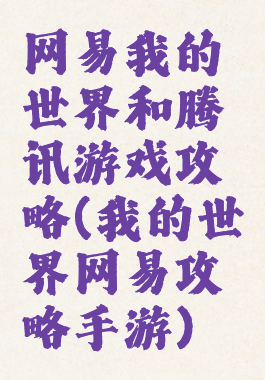 网易我的
世界和腾
讯游戏攻
略(我的世
界网易攻
略手游)